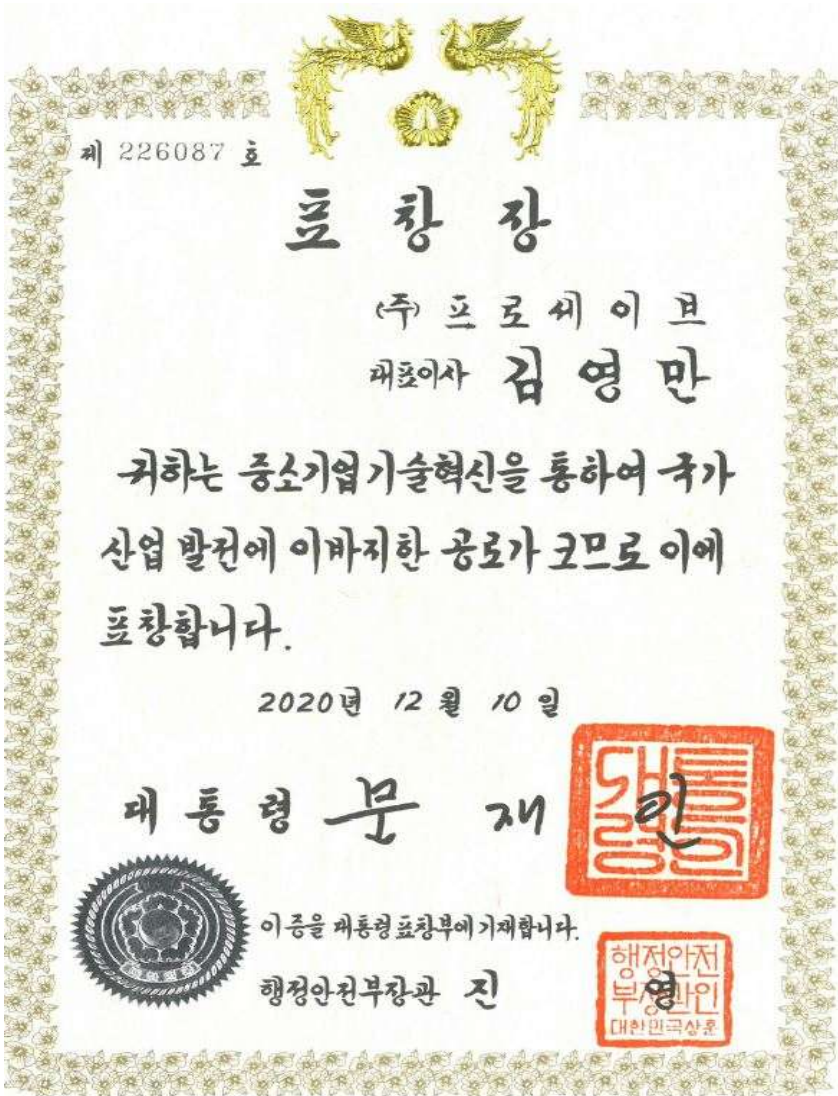 제 226087 호
표창장
(주) 프로세이브
대표이사 김영만
귀하는 중소기업기술혁신을 통하여 국가
산업 발전에 이바지한 공로가 크므로 이에
표창합니다.
2020년 12월 10일
대통령 문재인
대통령의인
이증을 대통령표창부에기재합니다.
행정안전부장관 진영
행정안전
부장관인
대한민국상훈